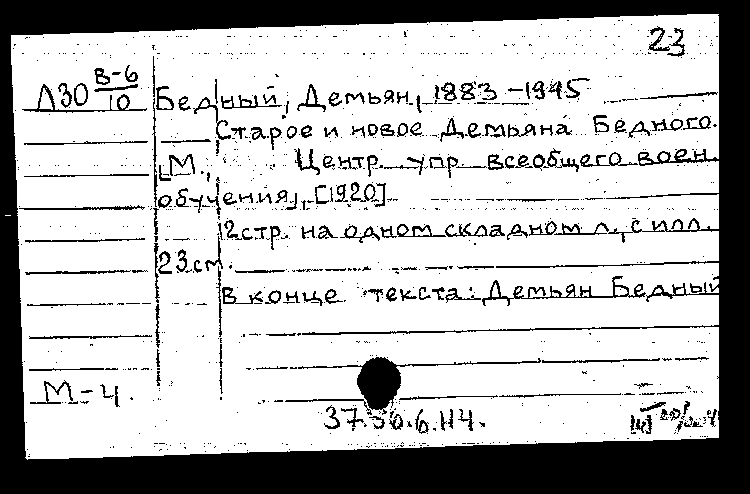 23
Л30 В-6/10 Бедный, Демьян, 1883-1945
Старое и новое Демьяна Бедного.
[М., Центр. упр. всеобщего воен.
обучения], [1920]
12стр. на одном складном л., с илл.
23см.
В конце текста: Демьян Бедный
М-4.